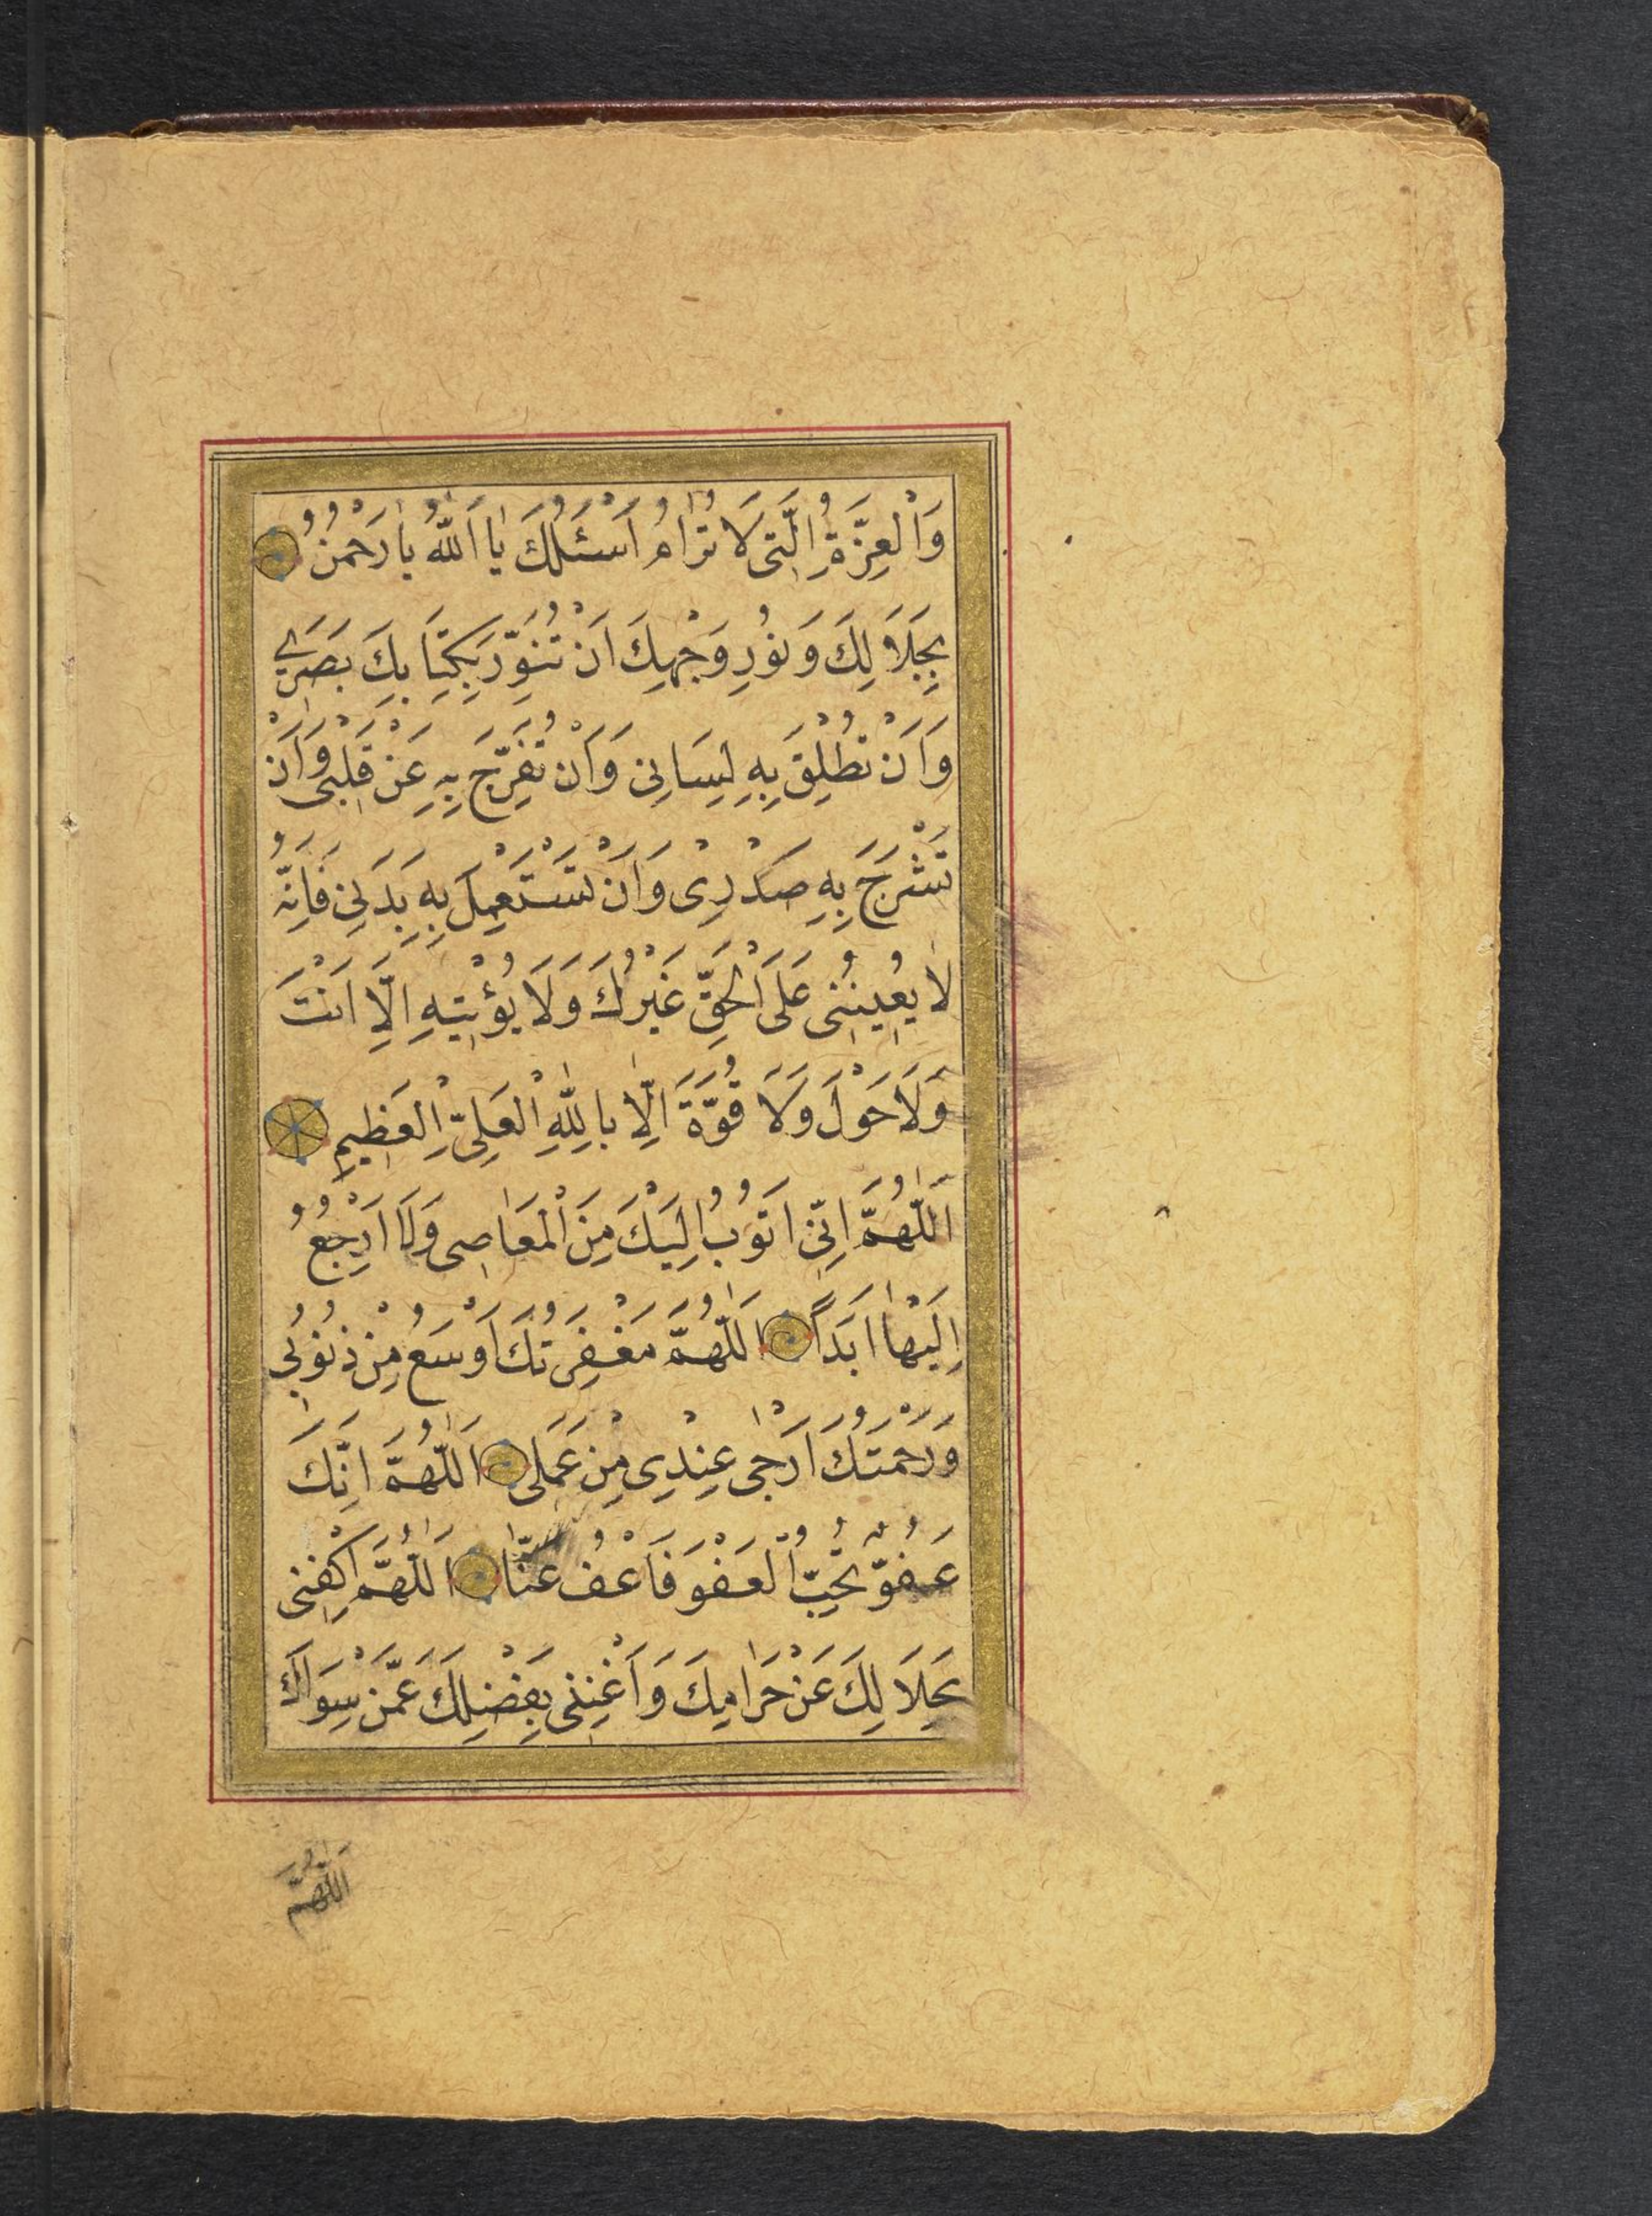 وَالْعِزَّةِ الَّتِى لَا تُرَامُ اَسْئَلُكَ يَا اَللّٰهُ يَا رَحْمٰنُ
بِجَلَالِكَ وَنُورِ وَجْهِكَ اَنْ تُنَوِّرَ بِكِتَابِكَ بَصَرِي
وَاَنْ تُطْلِقَ بِهِ لِسَانِى وَاَنْ تُفَرِّجَ بِهِ عَنْ قَلْبِى وَاَنْ
تَشْرَحَ بِهِ صَدْرِى وَاَنْ تَسْتَعْمِلَ بِهِ بَدَنِى فَاِنَّهُ
لَا يُعِينُنِى عَلَى الْحَقِّ غَيْرُكَ وَلَا يُؤْتِيهِ اِلَّا اَنْتَ
وَلَا حَوْلَ وَلَا قُوَّةَ اِلَّا بِاللّٰهِ الْعَلِىِّ الْعَظِيمِ
اَللّٰهُمَّ اِنِّى اَتُوبُ اِلَيْكَ مِنَ الْمَعَاصِى وَلَا اَرْجِعُ
اِلَيْهَا اَبَدًا اَللّٰهُمَّ مَغْفِرَتُكَ اَوْسَعُ مِنْ ذُنُوبِى
وَرَحْمَتُكَ اَرْجٰى عِنْدِى مِنْ عَمَلِى اَللّٰهُمَّ اِنَّكَ
عَفُوٌّ تُحِبُّ الْعَفْوَ فَاعْفُ عَنَّا اَللّٰهُمَّ اكْفِنِى
بِحَلَالِكَ عَنْ حَرَامِكَ وَاَغْنِنِى بِفَضْلِكَ عَمَّنْ سِوَاكَ
اَللّٰهُمَّ